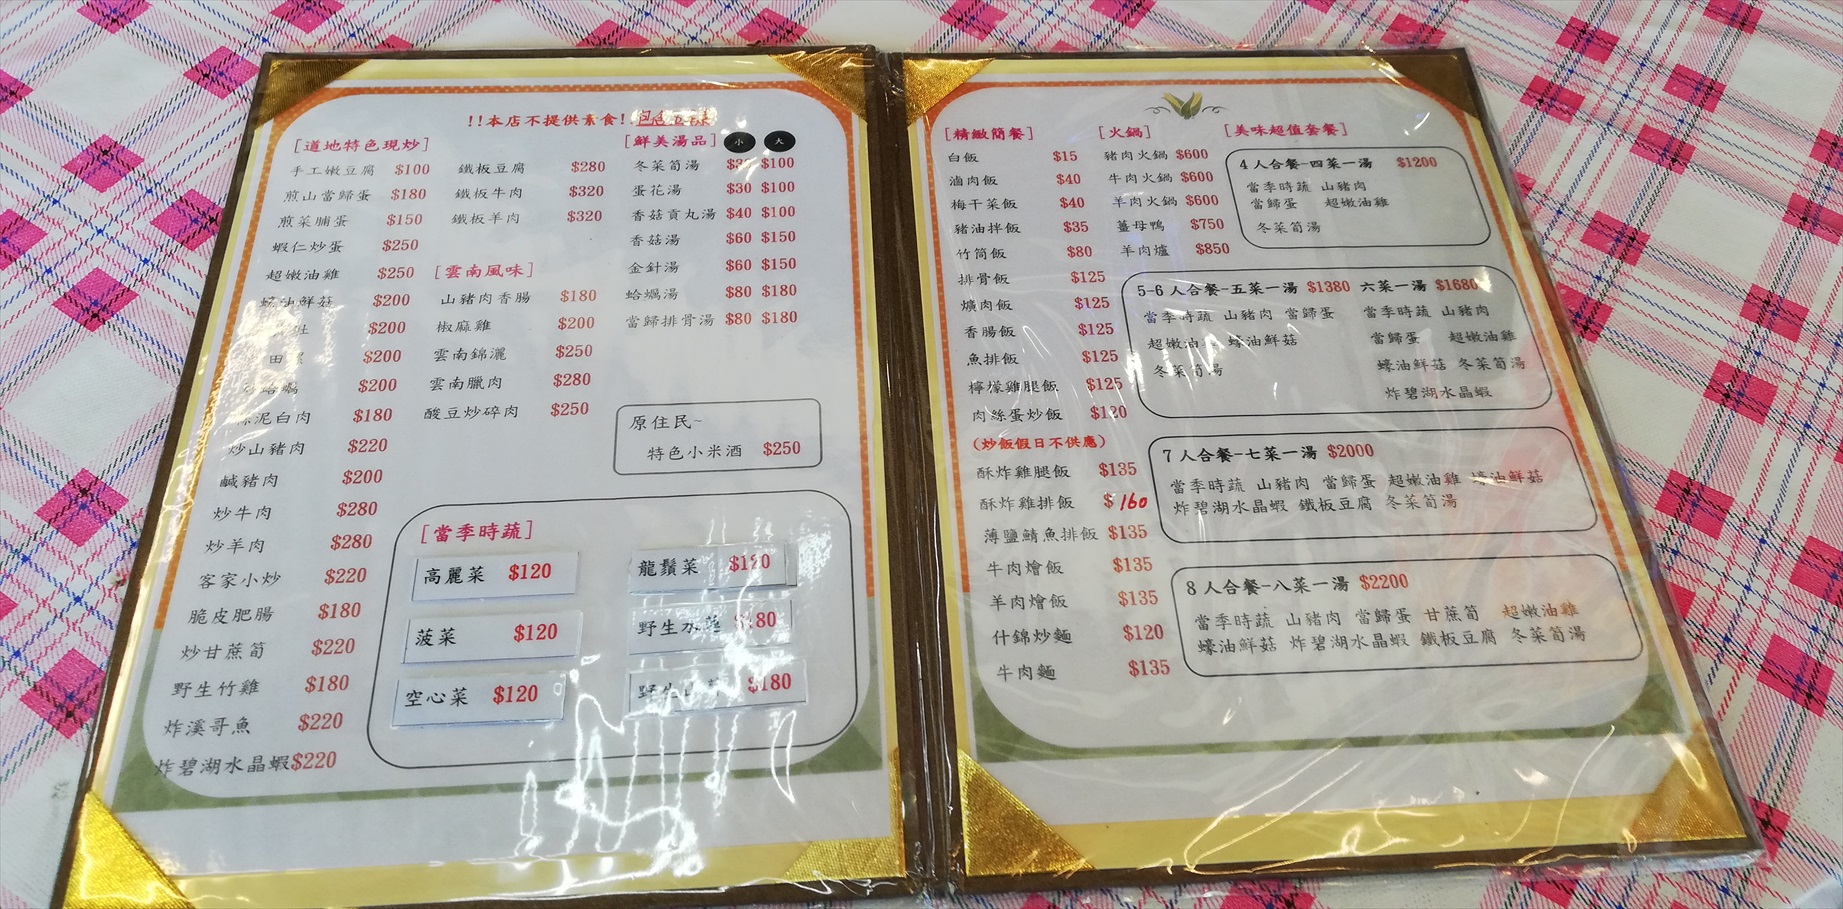 !!本店不提供素食!
[道地特色現炒]
手工嫩豆腐 $100
煎山當歸蛋 $180
煎菜脯蛋 $150
蝦仁炒蛋 $250
超嫩油雞 $250
蠔油鮮菇 $200
$200
田 $200
$200
蒜泥白肉 $180
炒山豬肉 $220
鹹豬肉 $200
炒牛肉 $280
炒羊肉 $280
客家小炒 $220
脆皮肥腸 $180
炒甘蔗筍 $220
野生竹雞 $180
炸溪哥魚 $220
炸碧湖水晶蝦$220
鐵板豆腐 $280
鐵板牛肉 $320
鐵板羊肉 $320
[雲南風味]
山豬肉香腸 $180
椒麻雞 $200
雲南錦灑 $250
雲南臘肉 $280
酸豆炒碎肉 $250
[鮮美湯品] 小 大
冬菜筍湯 $100
蛋花湯 $30 $100
香菇貢丸湯 $40 $100
香菇湯 $60 $150
金針湯 $60 $150
蛤蠣湯 $80 $180
當歸排骨湯 $80 $180
原住民~
特色小米酒 $250
[當季時蔬]
高麗菜 $120
龍鬚菜 $120
菠菜 $120
野生水蓮 $180
空心菜 $120
野生 $180
[精緻簡餐]
白飯 $15
滷肉飯 $40
梅干菜飯 $40
豬油拌飯 $35
竹筒飯 $80
排骨飯 $125
爌肉飯 $125
香腸飯 $125
魚排飯 $125
檸檬雞腿飯 $125
肉絲蛋炒飯 $120
(炒飯假日不供應)
酥炸雞腿飯 $135
酥炸雞排飯 $160
薄鹽鯖魚排飯 $135
牛肉燴飯 $135
羊肉燴飯 $135
什錦炒麵 $120
牛肉麵 $135
[火鍋]
豬肉火鍋 $600
牛肉火鍋 $600
羊肉火鍋 $600
薑母鴨 $750
羊肉爐 $850
[美味超值套餐]
4人合餐-四菜一湯 $1200
當季時蔬 山豬肉
當歸蛋 超嫩油雞
冬菜筍湯
5-6人合餐-五菜一湯 $1380
當季時蔬 山豬肉 當歸蛋
超嫩油雞 蠔油鮮菇
冬菜筍湯
六菜一湯 $1680
當季時蔬 山豬肉
當歸蛋 超嫩油雞
蠔油鮮菇 冬菜筍湯
炸碧湖水晶蝦
7人合餐-七菜一湯 $2000
當季時蔬 山豬肉 當歸蛋 超嫩油雞 蠔油鮮菇
炸碧湖水晶蝦 鐵板豆腐 冬菜筍湯
8人合餐-八菜一湯 $2200
當季時蔬 山豬肉 當歸蛋 甘蔗筍 超嫩油雞
蠔油鮮菇 炸碧湖水晶蝦 鐵板豆腐 冬菜筍湯